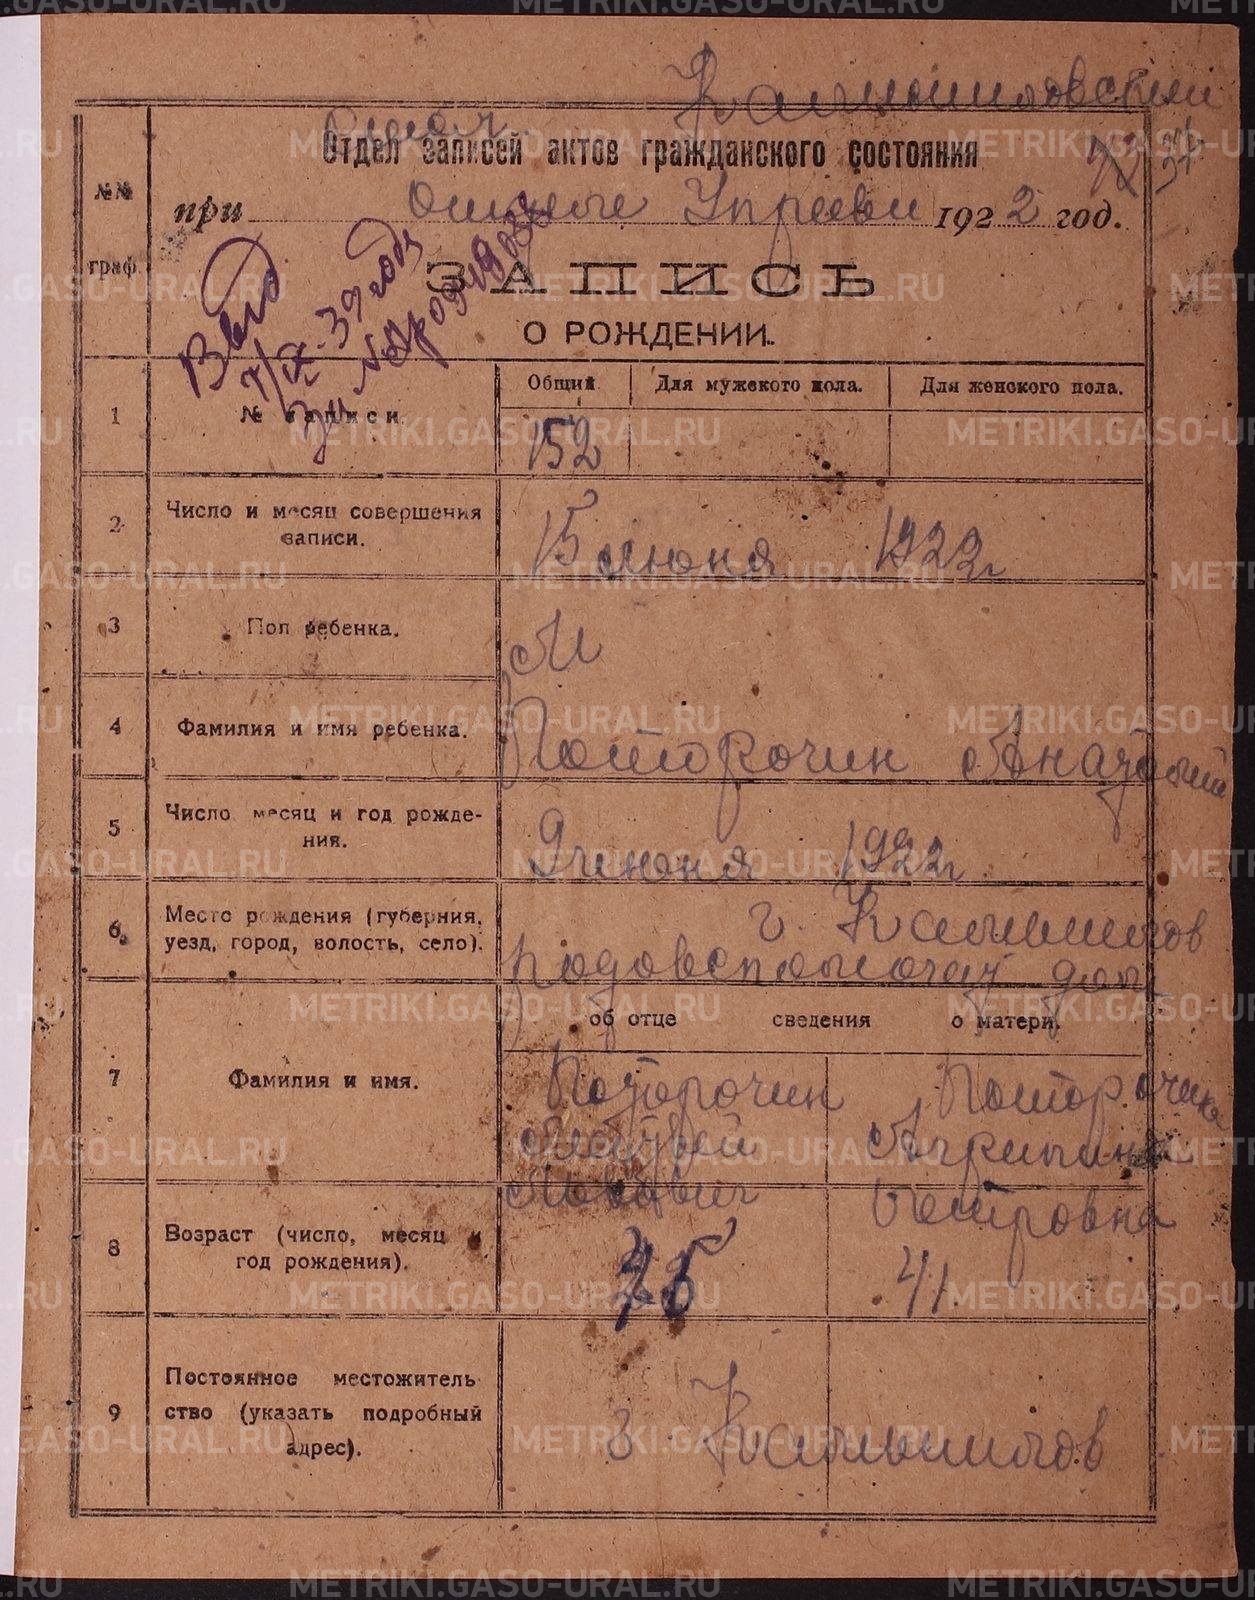 Камышловский
Отдел записей актов гражданского состояния
при Отделе Управы 1922 год.
№№ граф.
ЗАПИСЬ
О РОЖДЕНИИ.
Выд
7/IX-39 год
1 № записи
Общий. Для мужского пола. Для женского пола.
152
2 Число и месяц совершения записи.
15 июня 1922 г
3 Пол ребенка.
М
4 Фамилия и имя ребенка.
Поторочин Анатолий
5 Число месяц и год рождения.
9 июня 1922 г
6 Место рождения (губерния, уезд, город, волость, село).
г. Камышлов
Родовспомогат дом
об отце сведения о матери.
7 Фамилия и имя.
Поторочин Поторочина
Агрипина
Петровна
8 Возраст (число, месяц и год рождения).
41.
9 Постоянное местожительство (указать подробный адрес).
г Камышлов
METRIKI.GASO-URAL.RU